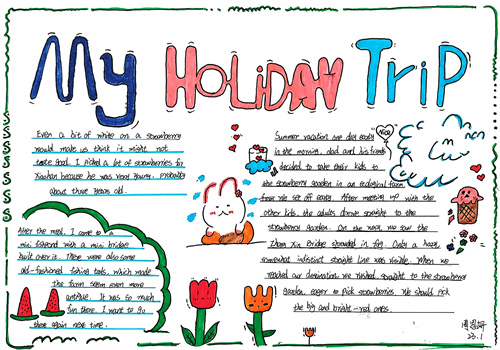 My HOLiDAY TriP
Even a bit of white on a strawberry
would make us think it might not
taste good. I picked a lot of strawberries for
because he was very young, probably
about three years old.
After the meal, I came to a
mini fishpond with a mini bridge
built over it. There were also some
old-fashioned fishing tools, which made
the farm seem even more
antique. It was so much
fun there. I want to go
there again next time.
Summer vacation one day early
in the morning, dad and his friends
decided to take their kids to
the strawberry garden in an ecological farm
have We set off early. After meeting up with the
other kids, the adults drove straight to the
strawberry garden. On the road, we saw the
Bridge shrouded in fog. Only a hazy,
somewhat indistinct straight line was visible. When we
reached our destination we rushed straight to the strawberry
garden, eager to pick strawberries. We should pick
the big and bright-red ones.
23.1